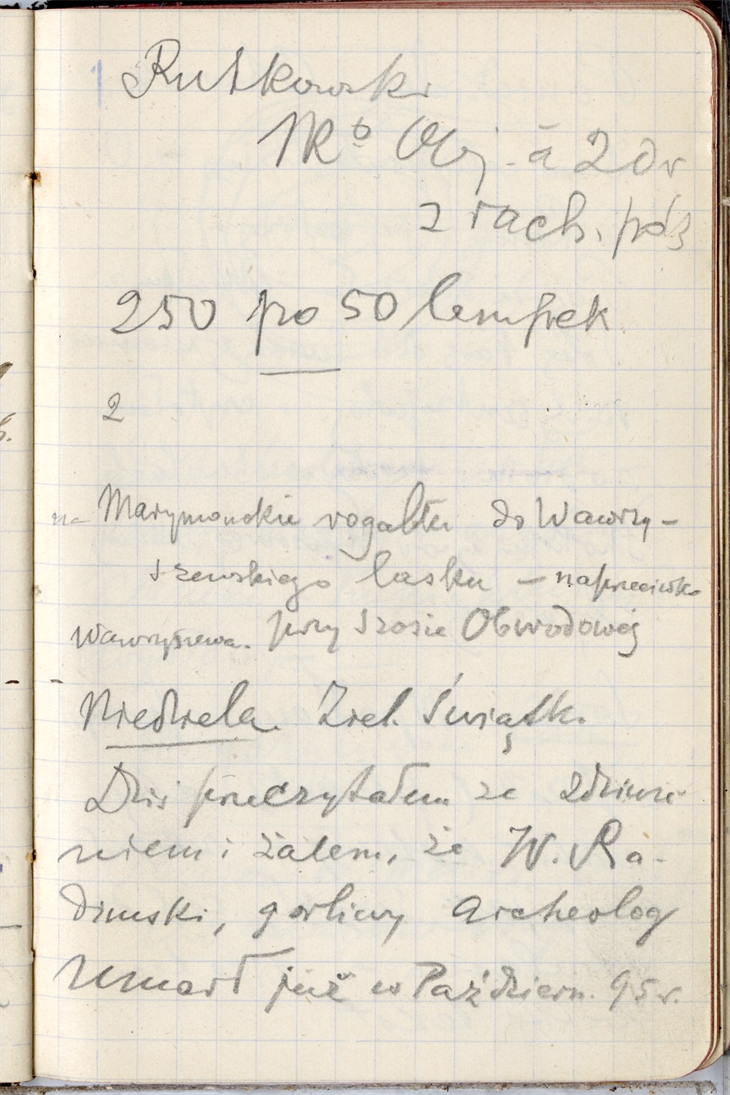 Rutkowski
1 Rb Obj. à 2 dr
z rach. póź
250 po 50 lempek
2
na Marymonckie rogatki do Wawrzy-
szewskiego lasku – naprzeciwko
Wawrzyszewa. przy szosie Obwodowej
Niedziela. Ziel. Świątk.
Dziś przeczytałem ze zdziwie-
niem i żalem, że W. Ra-
dimski, gorliwy archeolog
umarł już w Październ. 95 r.